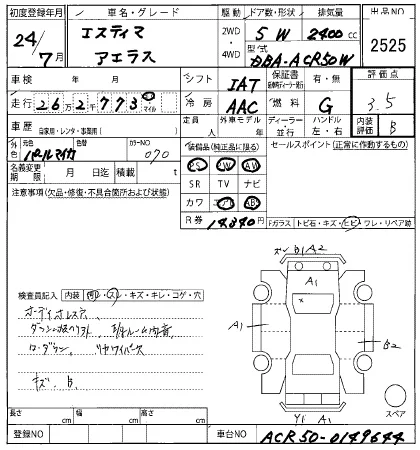 初度登録年月 車名・グレード 駆動 ドア数・形状 排気量 出品NO
24/7月 エスティマ アエラス 2WD 4WD 5 W 2400 cc 2525
型式 DBA-ACR50W
車検 年 月 シフト IAT 保証書 有・無 評価点 3.5
走行 26万2千773 マイル 冷房 AAC 燃料 G
車歴 自家用・レンタ・事業用( ) 定員 人 外車モデル 年 ディーラー・並行 ハンドル 左・右 内装評価 B
色 元色 パールマイカ カラーNO 070 装備品(純正品に限る) セールスポイント(正常に作動するもの)
名義変更期限 月 日迄 積載 t PS PW AW
SR TV ナビ
注意事項(欠品・修復・不具合箇所および状態) カワ エアB ABS
R券 14840円
Fガラス トビ石・キズ・ヒビ・ワレ・リペア跡
B1 A2
A1
検査員記入 内装 ・キズ・キレ・コゲ・穴
A1
B2
ローダウン リヤワイパー欠
キズ B
Y1 A1
スペア
長さ cm 幅 cm 高さ cm
登録NO 車台NO ACR50-0149644